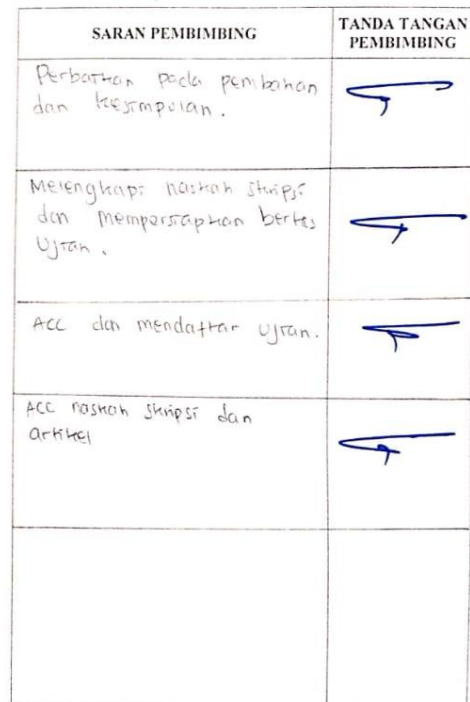 SARAN PEMBIMBING
TANDA TANGAN
PEMBIMBING
Perbaikan pada pembahan
dan kesimpulan.
Melengkapi naskah skripsi
dan mempersiapkan berkas
Ujian.
ACC dan mendaftar ujian.
ACC naskah skripsi dan
artikel